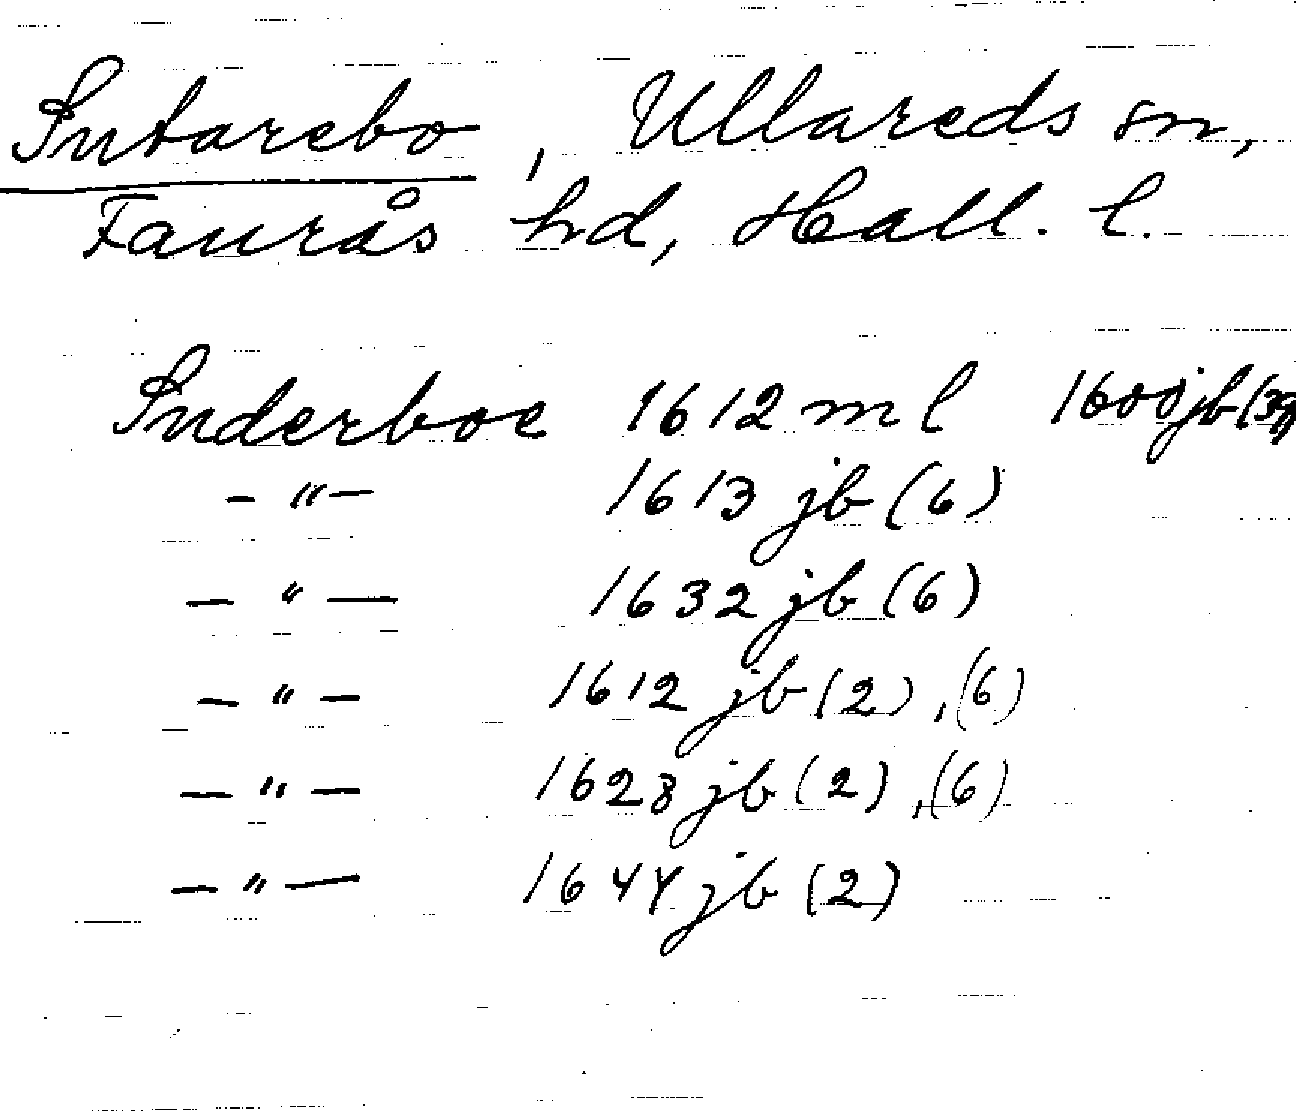 Sutarebo, Ullareds sn,
Faurås hd, Hall. l.
Suderboe 1612 ml 1600 jb (39)
— " — 1613 jb (6)
— " — 1632 jb (6)
— " — 1612 jb (2), (6)
— " — 1628 jb (2), (6)
— " — 1644 jb (2)